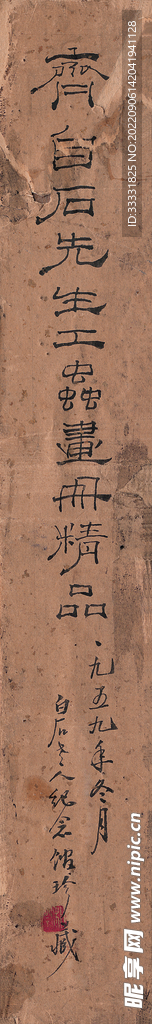 齊白石先生工蟲畫册精品
一九五九年冬月
白石老人纪念馆珍藏
ID:33331825 NO:20220906142041941128
昵享网 www.nipic.cn